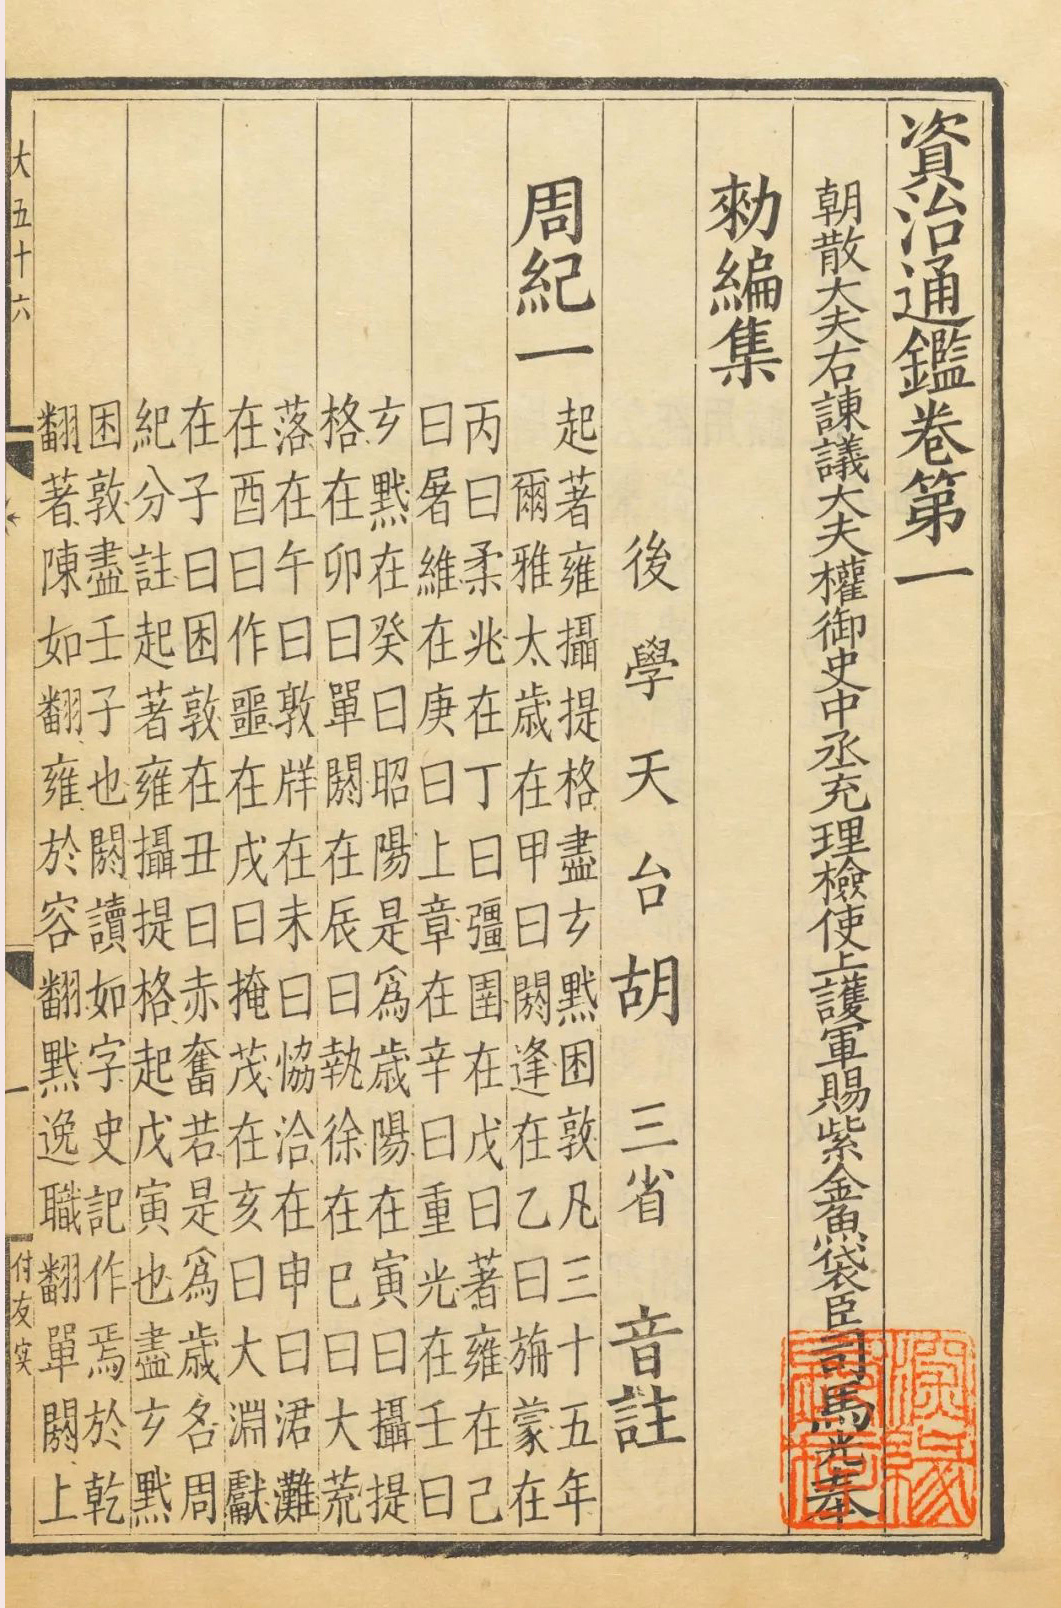 資治通鑑卷第一
朝散大夫右諫議大夫權御史中丞充理檢使上護軍賜紫金魚袋臣司馬光奉
勑編集
後學天台胡三省音註
周紀一
起著雍攝提格盡玄黓困敦凡三十五年
爾雅太歲在甲曰閼逢在乙曰旃蒙在
丙曰柔兆在丁曰彊圉在戊曰著雍在己
曰屠維在庚曰上章在辛曰重光在壬曰
玄黓在癸曰昭陽是爲歲陽在寅曰攝提
格在卯曰單閼在辰曰執徐在巳曰大荒
落在午曰敦牂在未曰協洽在申曰涒灘
在酉曰作噩在戌曰掩茂在亥曰大淵獻
在子曰困敦在丑曰赤奮若是爲歲名周
紀分註起著雍攝提格起戊寅也盡玄黓
困敦盡壬子也閼讀如字史記作焉於乾
翻著陳如翻雍於容翻黓逸職翻單閼上
大五十六
一
付友实